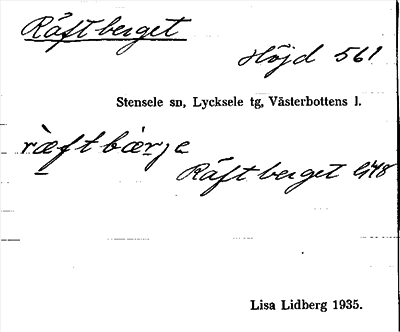 Råftberget
Höjd 561
Stensele sn, Lycksele tg, Västerbottens l.
ràeftbàerje
Råftberget G48
Lisa Lidberg 1935.